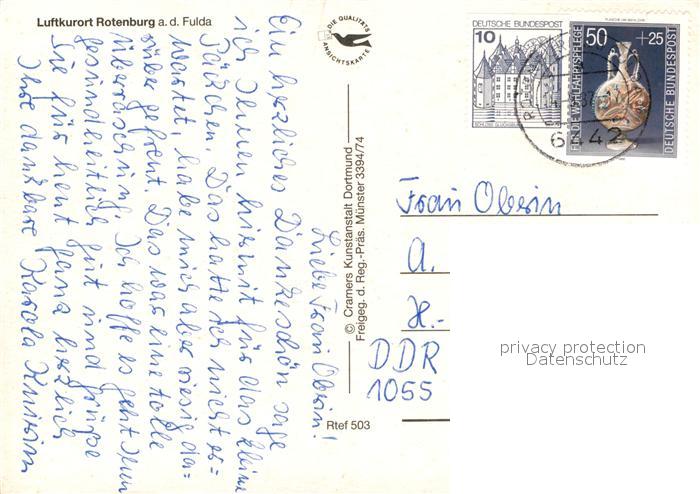 Luftkurort Rotenburg a. d. Fulda
DIE QUALITÄTS
ANSICHTSKARTE
Liebe Frau Oberin!
Ein herzliches Dankeschön sage
ich Ihnen hiermit für das kleine
Päckchen. Das hatte ich nicht er=
wartet, habe mich aber riesig da=
rüber gefreut. Das war eine tolle
Überraschung. Ich hoffe es geht Ihnen
gesundheitlich gut und grüße
Sie für heut ganz herzlich
Ihre dankbare Karola
© Cramers Kunstanstalt Dortmund
Freigeg. d. Reg.-Präs. Münster 3394/74
Rtef 503
DEUTSCHE BUNDESPOST
10
SCHLOSS GLÜCKSBURG
50 +25
FÜR DIE WOHLFAHRTSPFLEGE
DEUTSCHE BUNDESPOST
Frau Oberin
A.
H.-
DDR
1055
privacy protection
Datenschutz